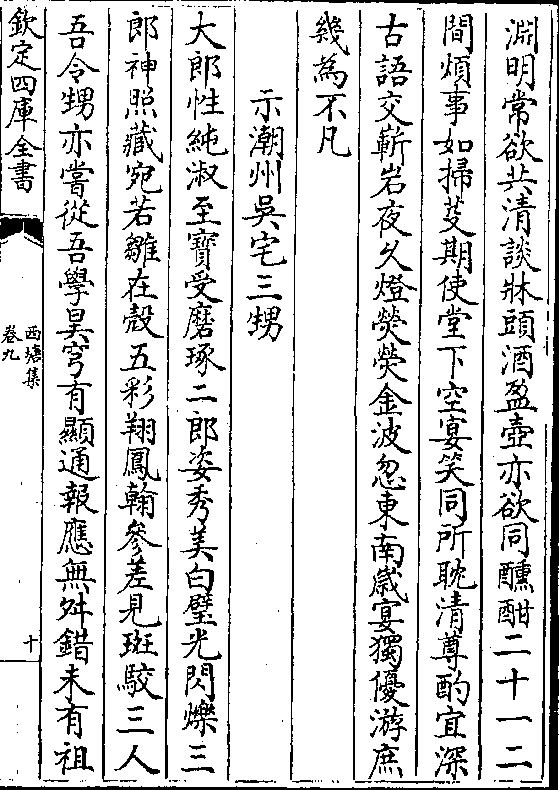 淵明常欲共清談牀頭酒盈壺亦欲同醺酣二十一二
間煩事如掃芟期使堂下空宴笑同所耽清尊酌宜深
古語交嶄岩夜久燈熒熒金波忽東南歲宴獨優游庶
幾為不凡
示潮州吳宅三甥
大郎性純淑至寶受磨琢二郎姿秀美白璧光閃爍三
郎神照藏宛若雛在殻五彩翔鳳翰參差見斑駮三人
吾令甥亦嘗從吾學昊穹有顯通報應無舛錯未有祖
欽定四庫全書
西塘集
卷九
十